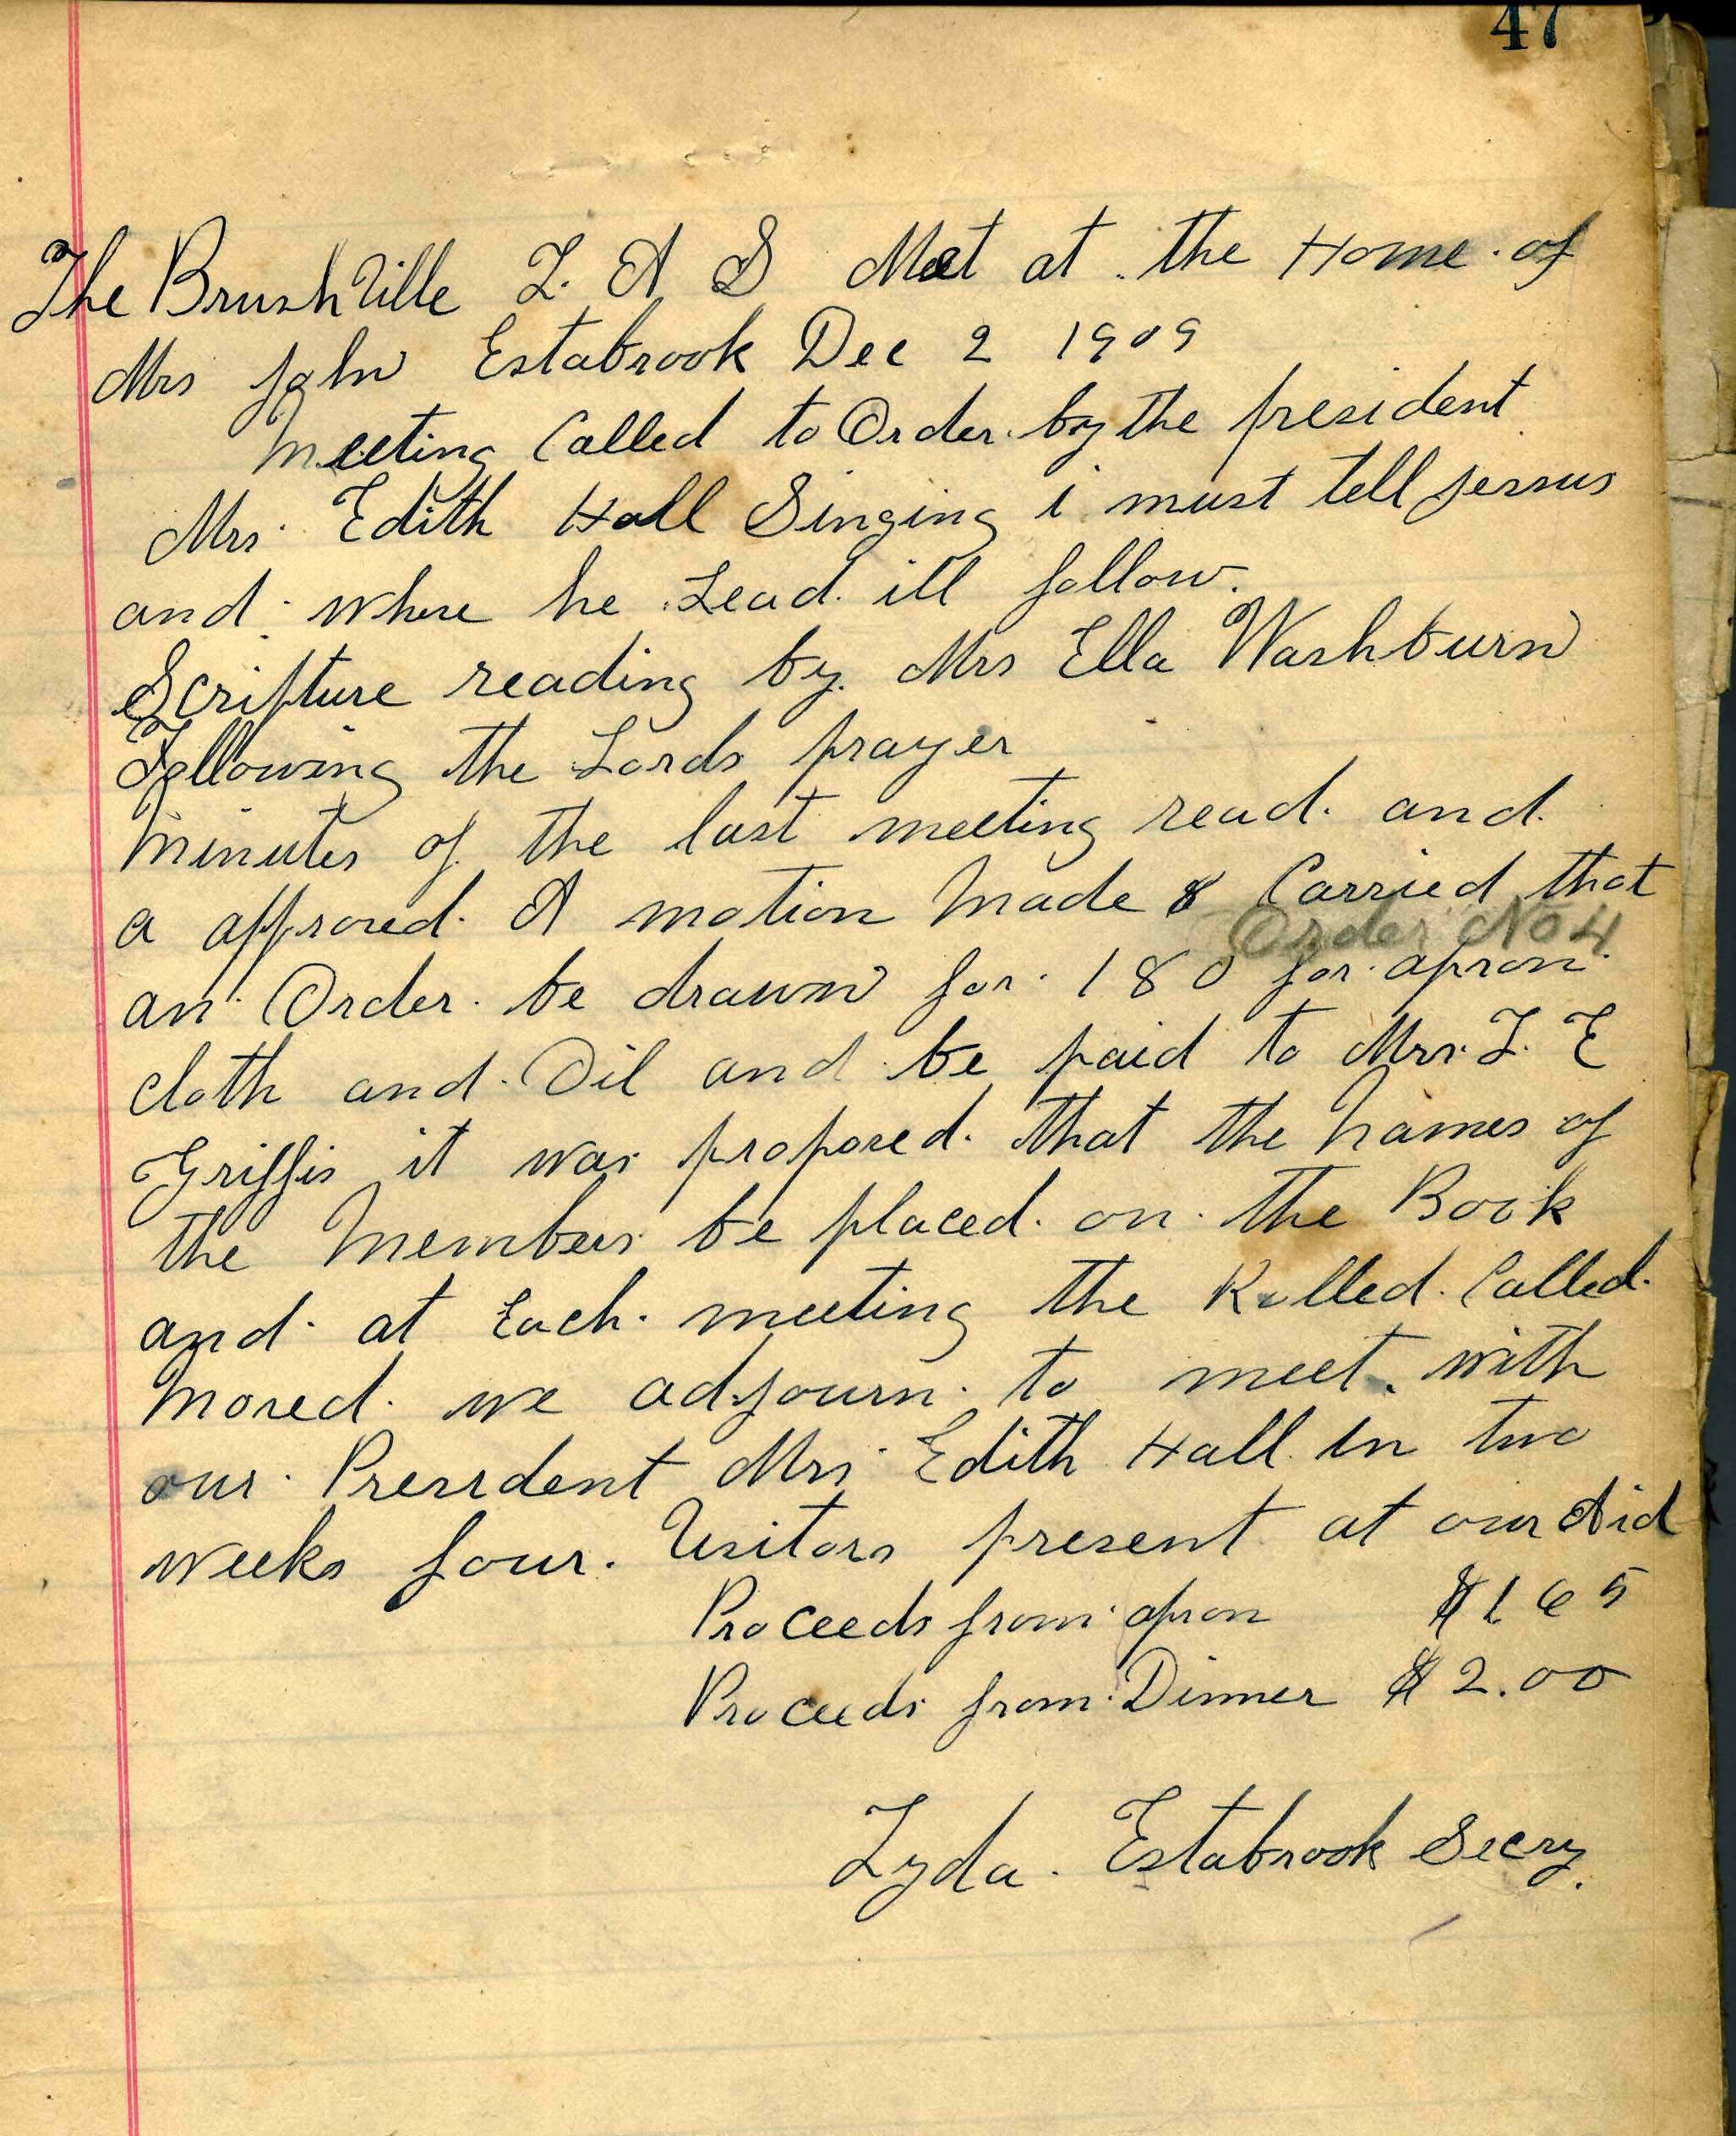 47
The BrushVille L. A S Met at the Home of
Mrs John Estabrook Dec 2 1909
Meeting Called to Order by the president
Mrs Edith Hall Singing i must tell jessus
and where he Lead ill follow.
Scripture reading by Mrs Ella Washburn
Following the Lords prayer
Minutes of the last meeting read and
a approved A motion Made & Carried that
Order No 4
an Order be drawn for 180 for apron
cloth and Oil and be paid to Mrs L. E
Griffis it was proposed that the Names of
the Members be placed on the Book
and at Each meeting the Rolled Called
Moved we adjourn to meet with
our President Mrs Edith Hall In two
weeks four Visitors present at our Aid
Proceeds from apron $1 65
Proceeds from Dinner $2.00
Lyda Estabrook Secry.